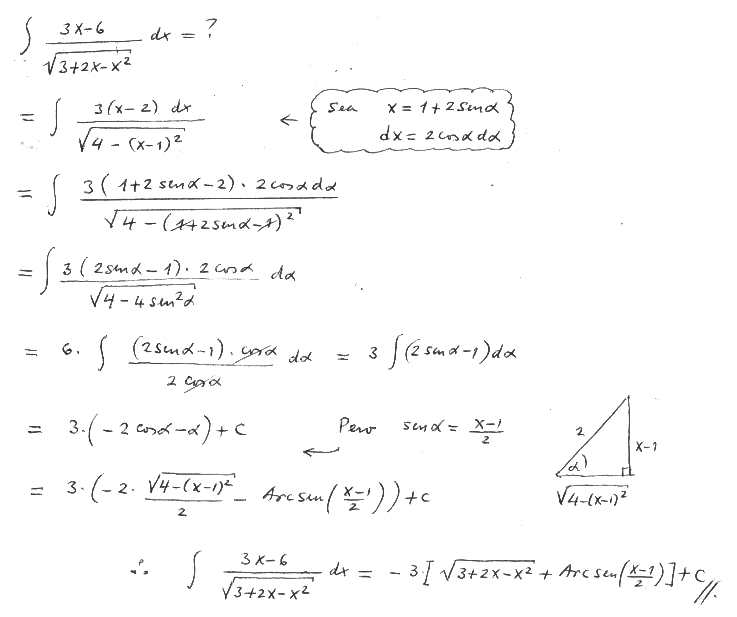 ∫ (3x-6)/√(3+2x-x²) dx = ?
= ∫ 3(x-2) dx / √(4-(x-1)²) ← sea x = 1+2senα
dx = 2cosα dα
= ∫ 3(1+2senα-2)·2cosα dα / √(4-(1+2senα-1)²)
= ∫ 3(2senα-1)·2cosα / √(4-4sen²α) dα
= 6·∫ (2senα-1)·cosα / 2cosα dα = 3∫(2senα-1)dα
= 3·(-2cosα-α)+C ← Pero senα = (x-1)/2
2 x-1
α
√(4-(x-1)²)
= 3·(-2·√(4-(x-1)²)/2 - Arcsen((x-1)/2))+C
∴ ∫ (3x-6)/√(3+2x-x²) dx = -3[√(3+2x-x²) + Arcsen((x-1)/2)]+C //.